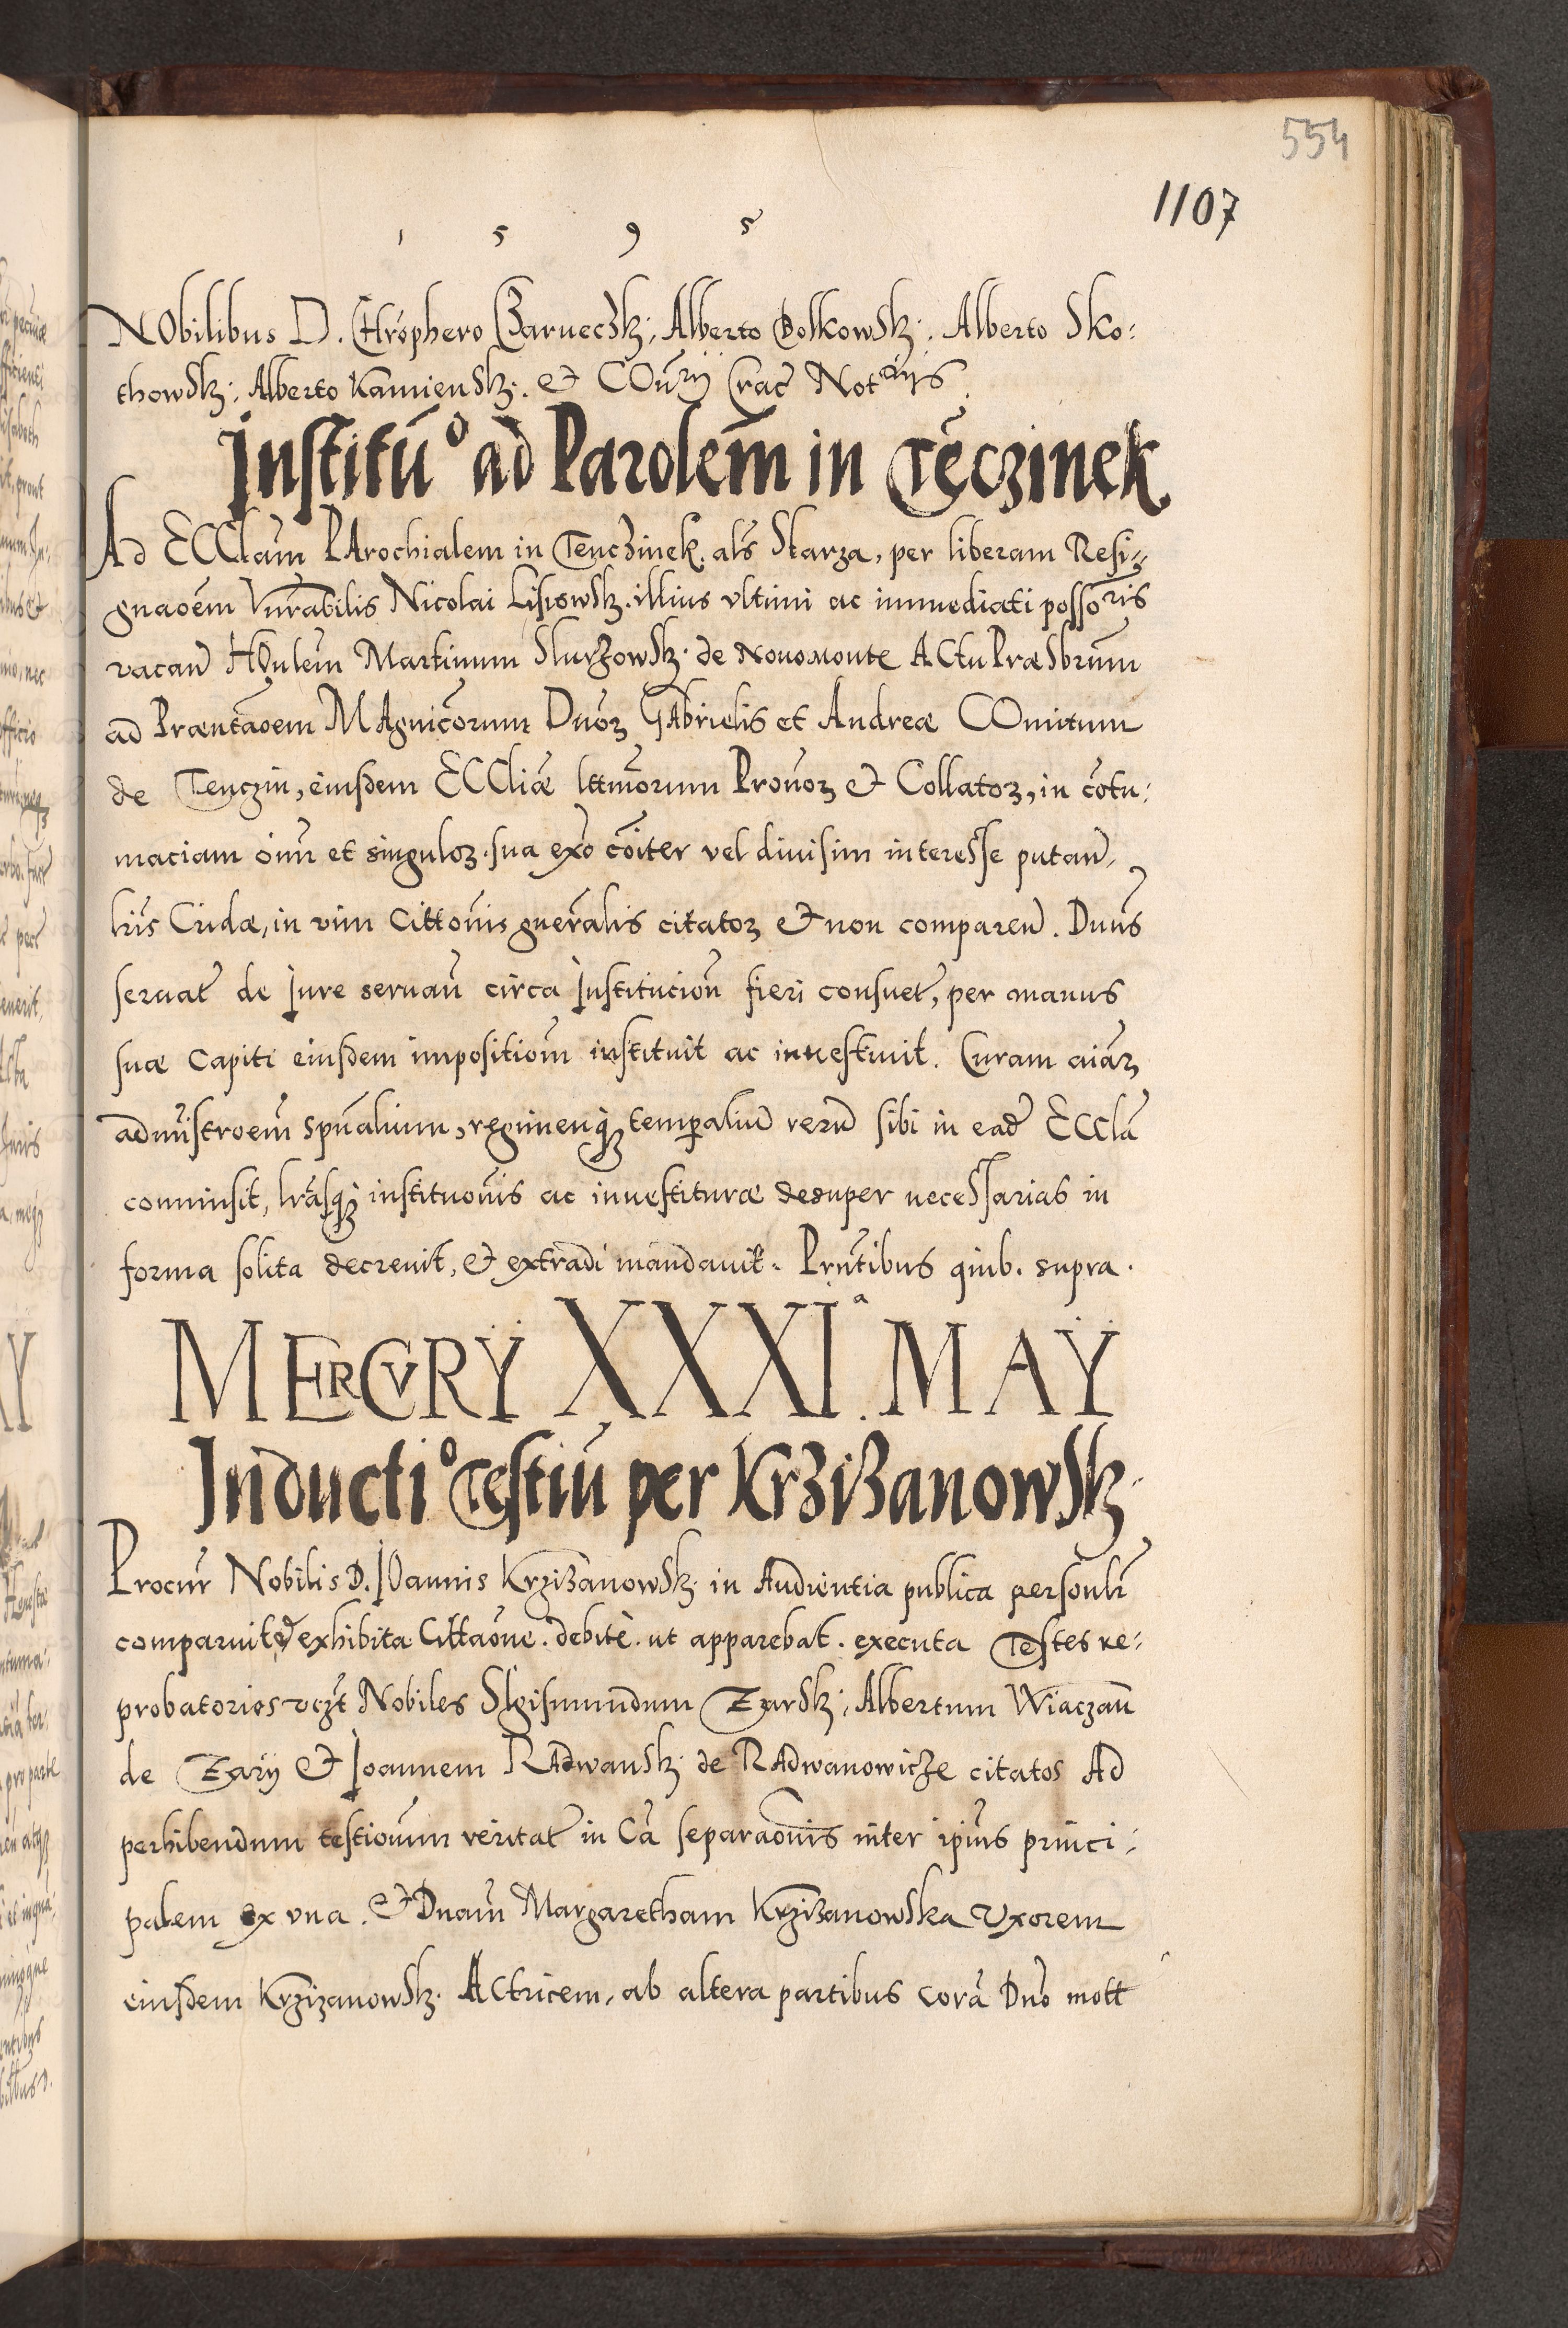 554
1107
1 5 9 5
NObilibus D. CHrophero Czarneczk: Alberto Boskowsk: Alberto Sko:
thowsk: Alberto Kamiensk: et COnrÿ Crac Notarÿs.
Institu° ad Parolem in Tęczinek
Ad ECClam PArochialem in Tenczinek als Starza, per liberam Resi-
gnaoem Vnrabilis Nicolai Lisowsk. illius vltimi ac immediati possoris
vacan HOnlem Martinum Slurzowsk: de Nouomonte ACtu PræSbrum
ad Præntaoem MAgnicorum Dnoꝝ GAbrielis et Andreæ COmitum
de Tenczin, eiusdem ECCliæ lttmorum Pronoꝝ et Collatoꝝ, in cotu:
maciam oim et singuloꝝ sua exo coiter vel diuisim interesse putan,
lris Cridæ, in vim Cittonis gneralis citatoꝝ et non comparen. Dnus
seruat de Iure seruan circa Institucion fieri consuet, per manus
suæ capiti eiusdem impositiom instituit ac inuestiuit. Curam aiaꝝ
admistroem spualium, regimenqꝫ temporaliu reru sibi in ead ECCla
commisit, lrasqꝫ institutionis ac inuestituræ desuper necessarias in
forma solita decreuit, et extradi mandauit. Prntibus quib. supra.
MERCVRŸ XXXIª. MAŸ
Inducti° Testiu per KrziZanowsk:
Procur Nobilis D. IOannis KrziZanowsk: in Audientia publica personlr
comparuit exhibita Cittaone. debite. ut apparebat. executa Testes re:
probatorios vczt Nobiles SIgismundum Zarsk: Albertum Wiaczan
de Zarÿ et Ioannem RAdwansk: de RAdwanowicze citatos Ad
perhibendum testionium veritat in Ca separaonis inter ipius princi:
palem ex vna. et Dnam Margaretham KrziZanowska Vxorem
eiusdem Krzizanowsk: ACtricem, ab altera partibus cora Dno mott